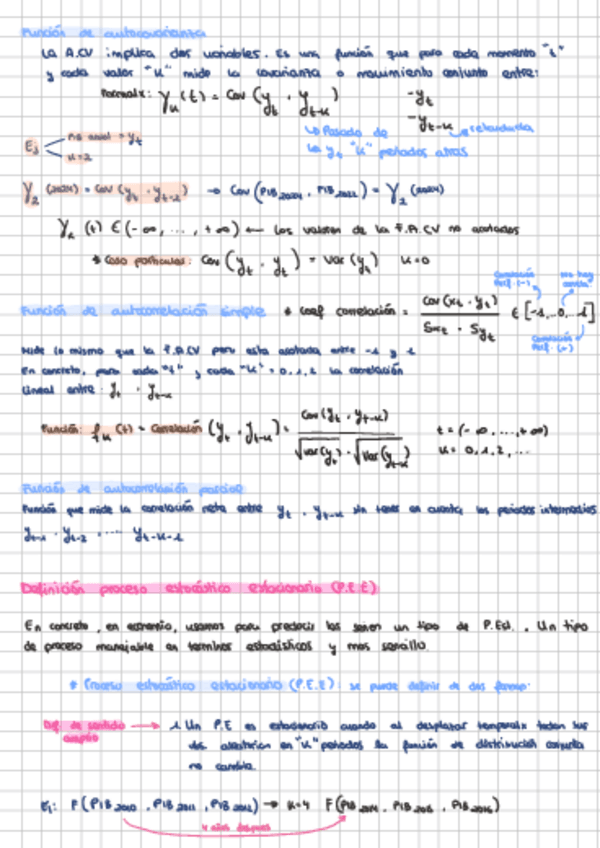 Función de autocovarianza
La A.CV implica dos variables. Es una función que para cada momento "t"
y cada valor "k" mide la covarianza o movimiento conjunto entre:
Formalx: γk (t) = Cov (yt , yt-k) - yt
- yt-k → retardada
↳ Pasado de
la yt "k" periodos atrás
Ej
k=2
γ2 (2024) = Cov (yt , yt-2) → Cov (PIB2024 , PIB2022) = γ2 (2024)
γk (t) ∈ (-∞, ..., +∞) ← Los valores de la F.A.CV no acotados
* Caso particular: Cov (yt , yt) = Var (yt) k=0
Función de autocorrelación simple * Coef correlación = Cov (xt , yt) / Sxt · Syt ∈ [-1,..0,..1]
Correlación Perf. (-)
no hay
Correlación Perf. (+)
Mide lo mismo que la F.A.CV pero esta acotada entre -1 y 1
En concreto, para cada "t" y cada "k" = 0,1,2 la correlación
lineal entre yt , yt-k
Función: ρk (t) = Correlación (yt , yt-k) = Cov (yt , yt-k) / √Var(yt) · √Var(yt-k) t = (-∞, ..., +∞)
k = 0,1,2,...
Función de autocorrelación parcial
Función que mide la correlación neta entre yt , yt-k sin tener en cuenta los periodos intermedios
yt-1 , yt-2 , .... yt-k-1
Definición proceso estocástico estacionario (P.E.E)
En concreto, en economía, usamos para predecir las series un tipo de P.Est. . Un tipo
de proceso manejable en terminos estadísticos y mas sencillo.
* Proceso estocástico estacionario (P.E.E): se puede definir de dos formas:
Def. de sentido amplio → 1. Un P.E es estacionario cuando al desplazar temporalx todas sus
aleatorias en "k" periodos la función de distribución conjunta
no cambia.
Ej: F(PIB2010 , PIB2011 , PIB2012) → k=4 F(PIB2014 , PIB2015 , PIB2016)
4 años despues